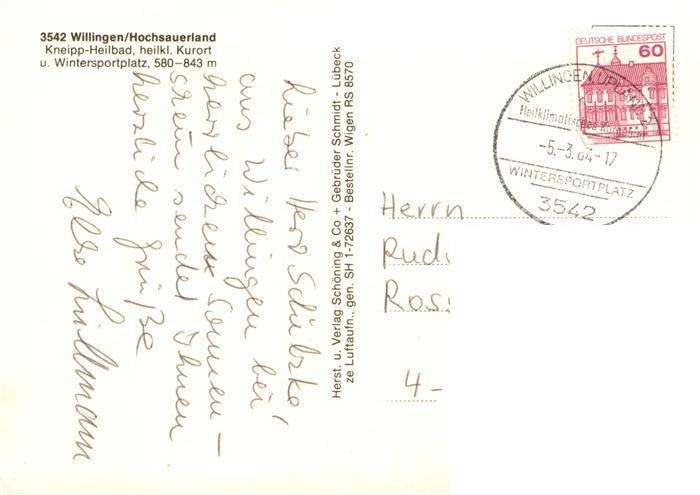 3542 Willingen/Hochsauerland
Kneipp-Heilbad, heilkl. Kurort
u. Wintersportplatz, 580–843 m
Lieber Herr Schützke,
aus Willingen bei
herrlichem Sonnen-
schein sendet Ihnen
herzliche Grüße
Lillmann
Herst. u. Verlag Schöning & Co + Gebrüder Schmidt - Lübeck
ze Luftaufn., gen. SH 1-72637 - Bestellnr. Wigen RS 8570
DEUTSCHE BUNDESPOST
60
WILLINGEN, UPLAND
Heilklimatischer Kurort
-5.-3.84-17
WINTERSPORTPLATZ
3542
Herrn
Rudi
Ros
4-